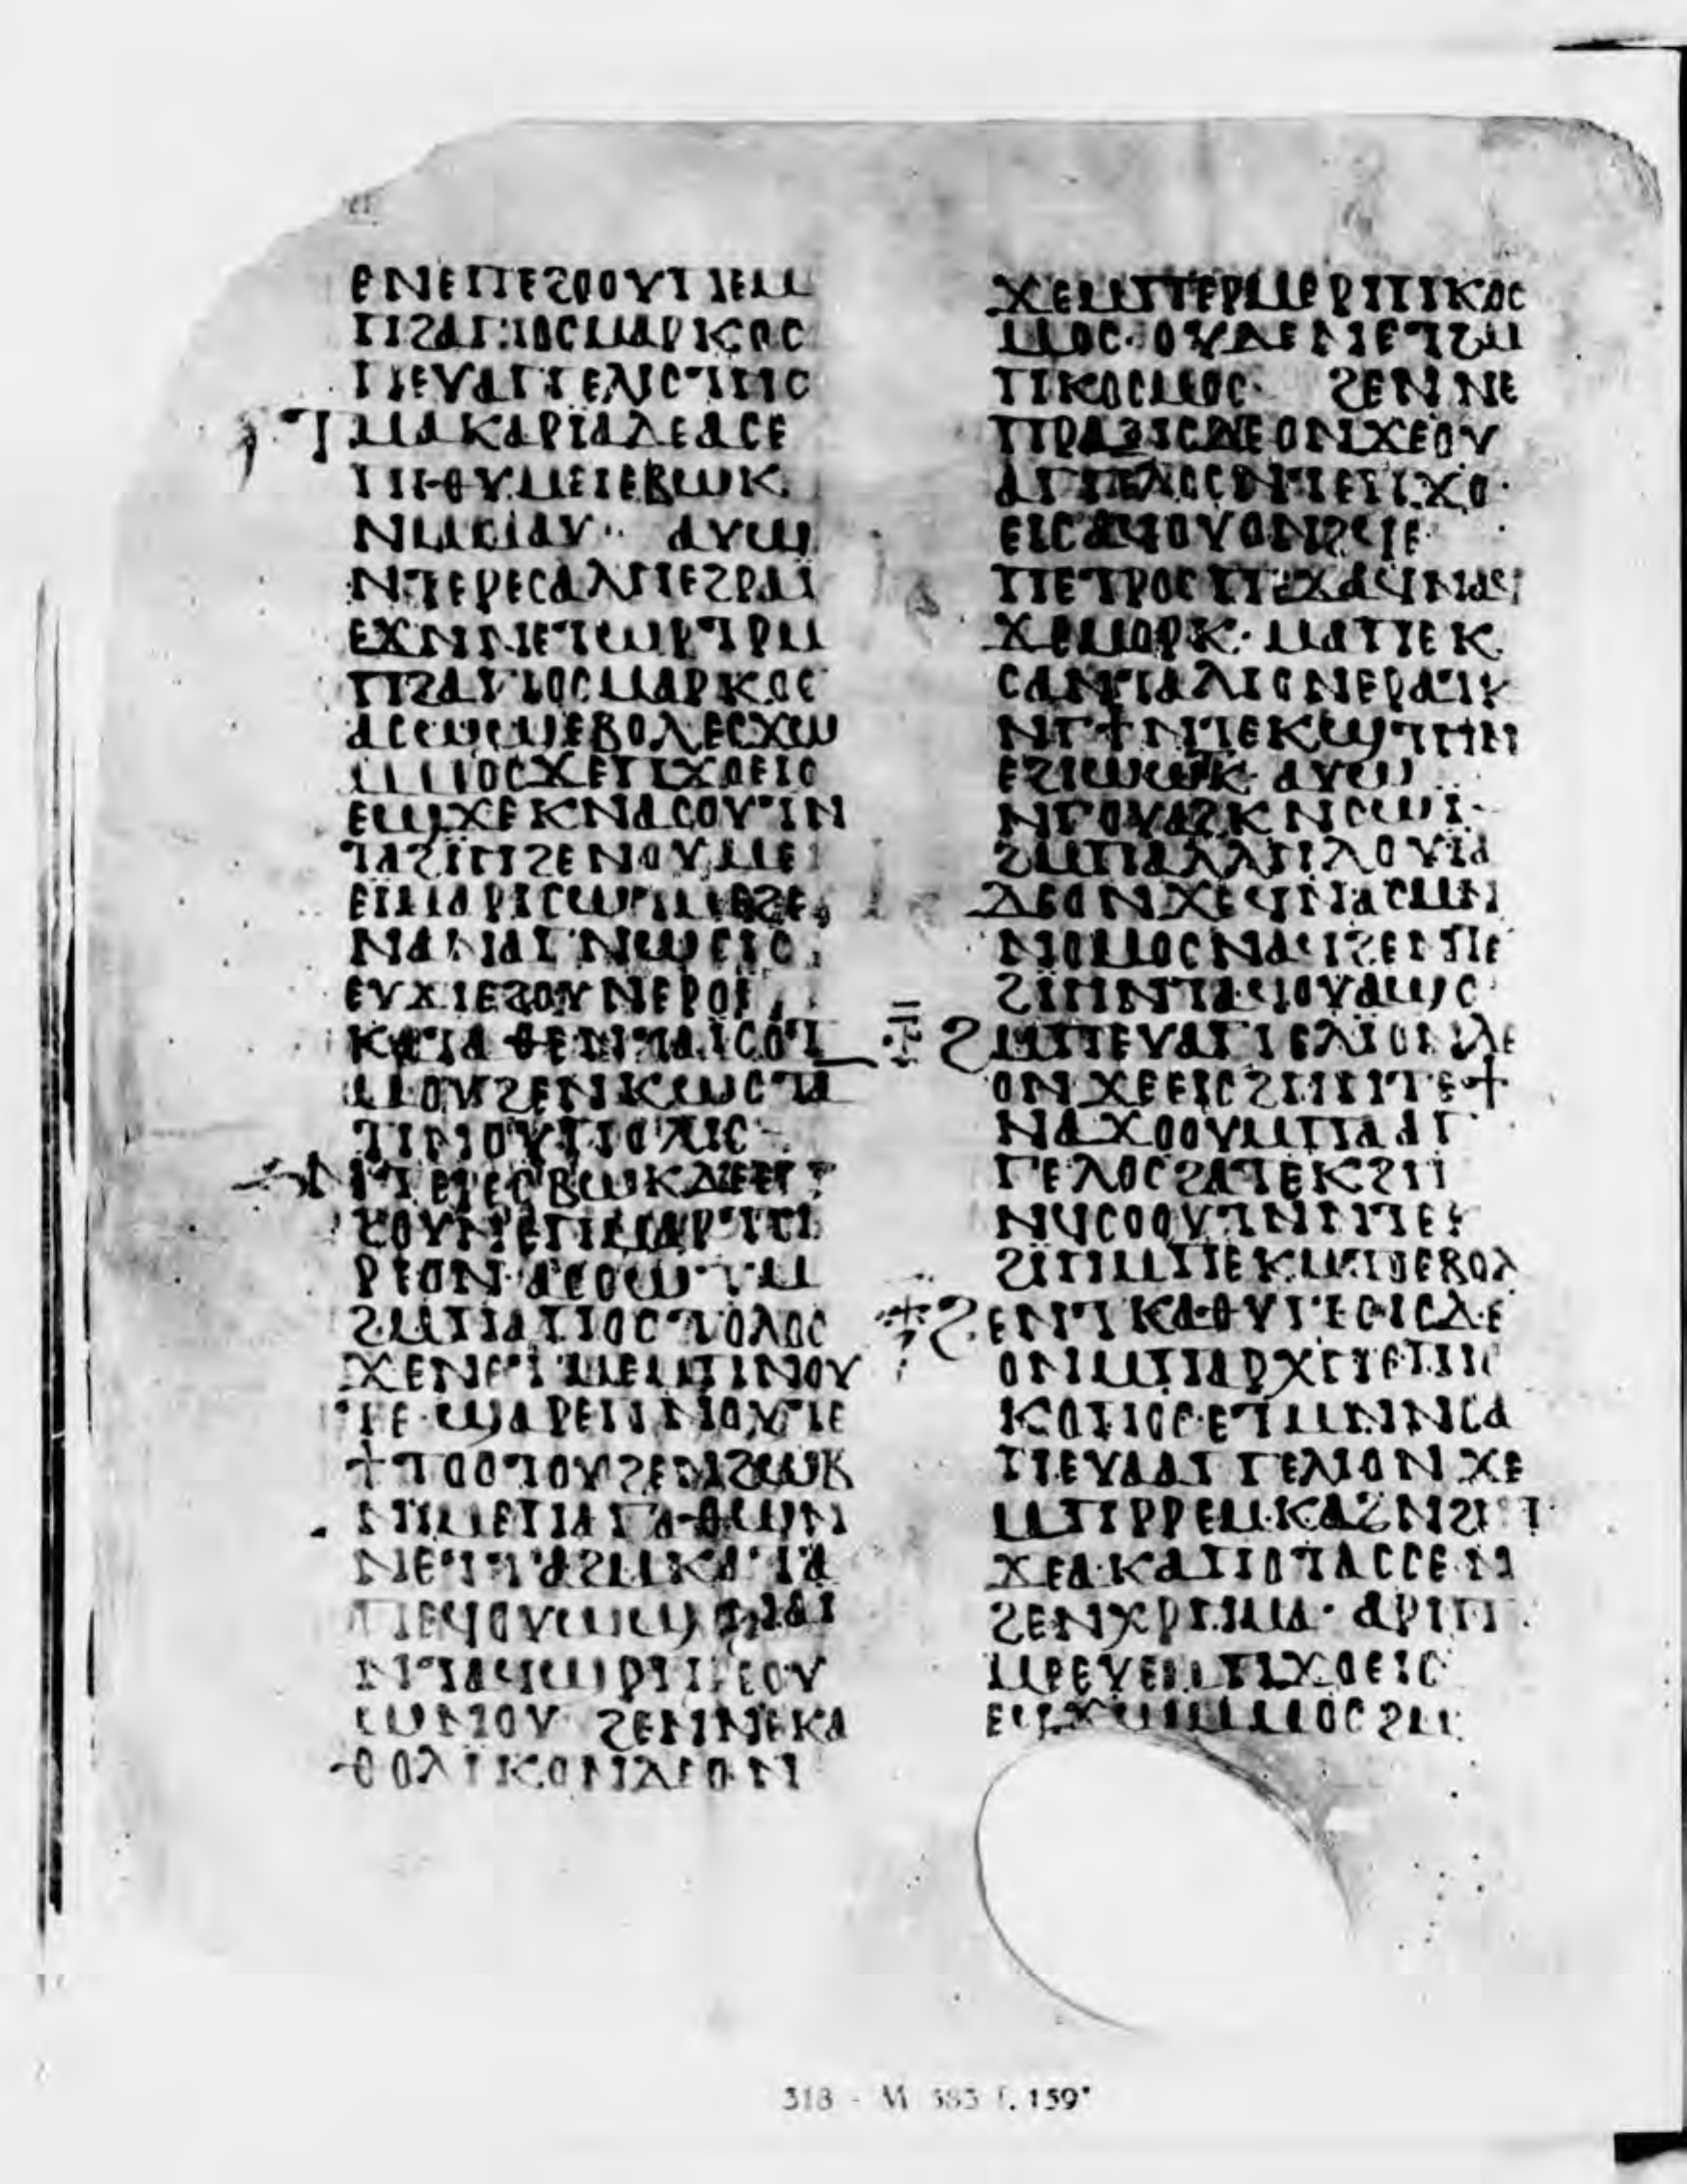 ⲉⲛⲉⲡⲉϩⲟⲟⲩⲡⲉⲙ
ⲡϩⲁⲅⲓⲟⲥⲙⲁⲣⲕⲟⲥ
ⲡⲉⲩⲁⲅⲅⲉⲗⲓⲥⲧⲏⲥ
ⲧⲙⲁⲕⲁⲣⲓⲁⲇⲉⲁⲥⲉ
ⲡⲓⲑⲩⲙⲉⲓⲉⲃⲱⲕ
ⲛⲙⲙⲁⲩ ⲁⲩⲱ
ⲛⲧⲉⲣⲉⲥⲁⲗⲏⲉϩⲣⲁⲓ
ⲉϫⲙⲡⲉⲧⲱⲣⲧⲣⲙ
ⲡϩⲁⲅⲓⲟⲥⲙⲁⲣⲕⲟⲥ
ⲁⲥⲱϣⲉⲃⲟⲗⲉⲥϫⲱ
ⲙⲙⲟⲥϫⲉⲡϫⲟⲉⲓⲥ
ⲉϣϫⲉⲕⲛⲁⲥⲟⲩⲧⲛ
ⲧⲁϩⲓⲏϩⲉⲛⲟⲩⲙⲉ
ⲛⲁⲛⲁⲅⲛⲱⲥⲓⲥ
ⲉⲩϫⲓⲉϩⲟⲩⲛⲉⲣⲟⲓ
ⲙⲟⲩϩⲉⲛⲕⲱⲥⲧⲁ
ⲧⲓⲛⲟⲩⲡⲟⲗⲓⲥ
ⲛⲧⲉⲣⲉⲥⲃⲱⲕⲇⲉⲉ
ϩⲟⲩⲛⲉⲡⲙⲁⲣⲧⲩ
ⲣⲓⲟⲛⲁⲥⲥⲱⲧⲙ
ϩⲙⲡⲁⲡⲟⲥⲧⲟⲗⲟⲥ
ϫⲉⲛⲉⲧⲙⲉⲙⲡⲛⲟⲩ
ⲧⲉ ϣⲁⲣⲉⲡⲛⲟⲩⲧⲉ
ϯⲧⲟⲟⲧⲟⲩϩⲉⲛϩⲱⲃ
ⲛⲓⲙⲉⲡⲁⲅⲁⲑⲟⲛ
ⲛⲉⲧⲧⲁϩⲙⲕⲁⲧⲁ
ⲡⲉϥⲟⲩⲱϣ ⲛⲁⲓ
ⲛⲧⲁϥϣⲣⲡⲥⲟⲩ
ⲱⲛⲟⲩ ϩⲉⲛⲛⲉⲕⲁ
ⲑⲟⲗⲓⲕⲟⲛⲇⲉⲟⲛ
ϫⲉⲙⲡⲉⲣⲙⲉⲣⲉⲡⲕⲟⲥ
ⲙⲟⲥ ⲟⲩⲇⲉⲛⲉⲧϩⲙ
ⲡⲕⲟⲥⲙⲟⲥ ϩⲉⲛⲛⲉ
ⲡⲣⲁⲝⲓⲥⲇⲉⲟⲛϫⲉⲟⲩ
ⲁⲅⲅⲉⲗⲟⲥⲛⲧⲉⲡϫⲟ
ⲉⲓⲥⲁϥⲟⲩⲟⲛϩϥⲉ
ⲡⲉⲧⲣⲟⲥ ⲡⲉϫⲁϥⲛⲁϥ
ϫⲉⲙⲟⲣⲕ ⲙⲁⲡⲉⲕ
ⲥⲁⲛⲇⲁⲗⲓⲟⲛⲉⲣⲁⲧⲕ
ⲛⲅϯⲛⲧⲉⲕϣⲧⲏⲛ
ⲉϩⲓⲱⲱⲕ ⲁⲩⲱ
ⲛⲅⲟⲩⲁϩⲕⲛⲥⲱⲓ
ϩⲙⲡⲁⲗⲗⲏⲗⲟⲩⲓⲁ
ⲇⲉⲟⲛϫⲉϥⲛⲁⲥⲙⲛ
ⲛⲟⲙⲟⲥⲛⲁϥϩⲉⲛⲧⲉ
ϩⲓⲏⲛⲧⲁϥⲟⲩⲁϣⲥ
ϩⲙⲡⲉⲩⲁⲅⲅⲉⲗⲓⲟⲛⲇⲉ
ⲟⲛϫⲉⲉⲓⲥϩⲏⲏⲧⲉϯ
ⲛⲁϫⲟⲟⲩⲙⲡⲁⲁⲅ
ⲅⲉⲗⲟⲥϩⲁⲧⲉⲕϩⲏ
ⲛϥⲥⲟⲟⲩⲧⲛⲛⲧⲉ
ϩⲓⲏⲙⲡⲉⲕⲙⲧⲟⲉⲃⲟⲗ
ϩⲉⲛⲧⲕⲁⲑⲩⲅⲉⲥⲓⲥⲇⲉ
ⲟⲛⲙⲡⲁⲣⲭⲓⲉⲡⲓⲥ
ⲕⲟⲡⲟⲥ ⲉⲧⲙⲛⲛⲥⲁ
ⲡⲉⲩⲁⲁⲅⲅⲉⲗⲓⲟⲛ ϫⲉ
ⲙⲡⲣⲣⲉⲙⲕⲁϩⲛϩⲏⲧ
ϫⲉⲁⲕⲁⲡⲟⲧⲁⲥⲥⲉⲛ
ϩⲉⲛⲭⲣⲏⲙⲁ ⲁⲣⲓⲡ
ⲙⲉⲉⲩⲉⲙⲡϫⲟⲉⲓⲥ
ⲉϥϫⲱⲙⲙⲟⲥϩⲙ
318 - M 583 f. 159